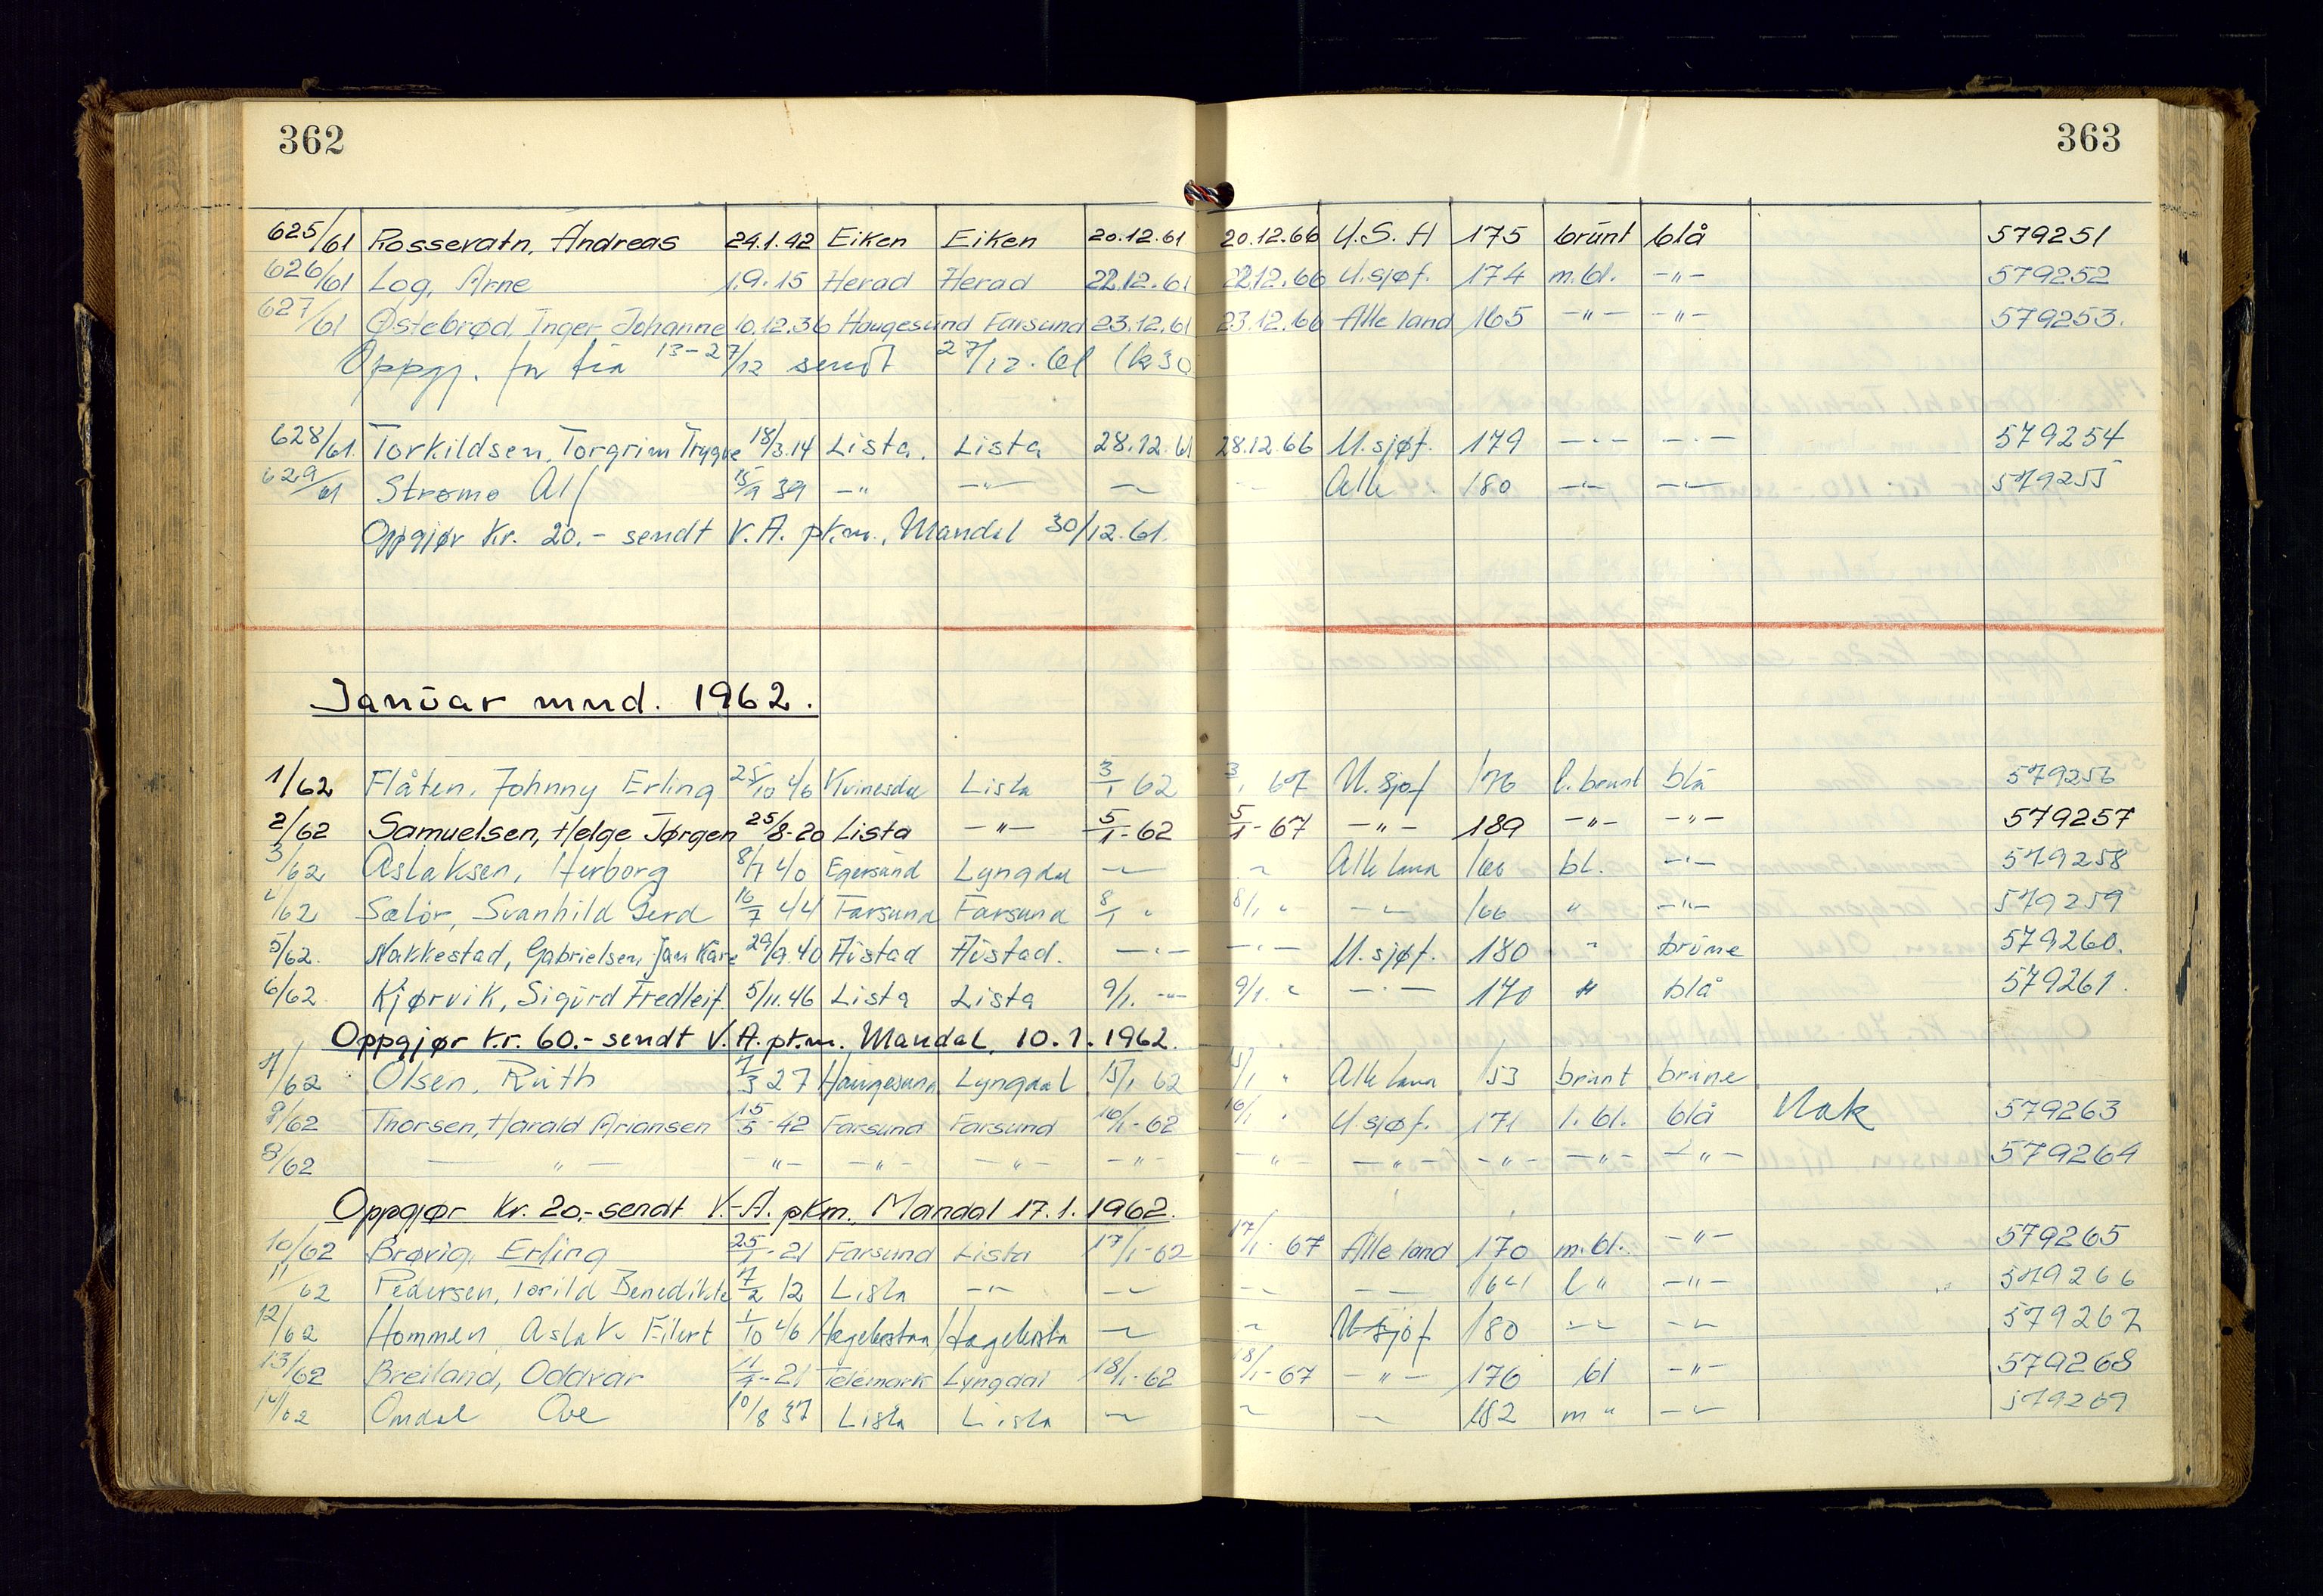 362 363
625/61 Rossevatn, Andreas 24.1.42 Eiken Eiken 20.12.61 20.12.66 U.S.A 175 brunt blå 579251
626/61 Log, Arne 1.9.15 Herad Herad 22.12.61 22.12.66 U.sjøf. 174 m.bl. -"- 579252
627/61 Østebrød, Inger Johanne 10.12.36 Haugesund Farsund 23.12.61 23.12.66 Alle land 165 -"- -"- 579253.
Oppgj. for tia 13-27/12 sendt 27/12.61 (kr 30
628/61. Torkildsen, Torgrim Trygve 18/3.14 Lista. Lista 28.12.61 28.12.66 U.sjøf. 179 -"- -"- 579254
629/61 Strømø Alf 15/9 39 -"- -"- Alle 180 -"- -"- 579255
Oppgjør Kr. 20.- sendt V.A. pk.m., Mandal 30/12.61.
Januar mnd. 1962.
1/62 Flåten, Johnny Erling 25/10 46 Kvinesdal Lista 3/1 62 3/1 67 U.sjøf 176 l.brunt blå 579256
2/62 Samuelsen, Helge Jørgen 25/8-20 Lista -"- 5/1-62 5/1-67 -"- 189 -"- -"- 579257
3/62 Aslaksen, Herborg 8/7 40 Egersund Lyngdal Alle land 160 bl. -"- 579258
4/62 Sælør, Svanhild Gerd 16/7 44 Farsund Farsund 8/1 " 8/1 " -"- 166 " -"- 579259
5/62. Nakkestad, Gabrielsen, Jan Kåre 29/9.40 Åustad Åustad. -"- -"- U.sjøf. 180 " brune 579260.
6/62. Kjørvik, Sigurd Fredleif. 5/11.46 Lista Lista 9/1. -"- 9/1. " -"- 170 " blå 579261.
Oppgjør kr. 60.- sendt V.A. pk.m. Mandal. 10.1.1962.
7/62 Olsen, Ruth 7/3 27 Haugesund Lyngdal 15/1 62 15/1 " Alle land 153 brunt brune
8/62 Thorsen, Harald Ariansen 15/5-42 Farsund Farsund 16/1-62 16/1 " U.sjøf. 171 l.bl. blå Mak 579263
8/62 -"- -"- -"- -"- -"- -"- -"- -"- -"- -"- 579264
Oppgjør kr. 20,- sendt V.-A. pkm., Mandal 17.1.1962.
10/62 Brøvig, Erling 25/1-21 Farsund Lista 17/1-62 17/1-67 Alle land 170 m.bl. -"- 579265
11/62 Pedersen, Torild Benedikte 7/2 12 Lista -"- -"- -"- -"- 164 l " -"- 579266
12/62 Hommen, Aslak Eilert 1/10 46 Hægebostad Hægebosta U-sjøf 180 -"- -"- 579267
13/62 Breiland, Oddvar 11/7-21 Telemark Lyngdal 18/1-62 18/1-67 -"- 176 bl -"- 579268
14/62 Omdal Ove 10/8 37 Lista Lista 182 m " -"- 579269